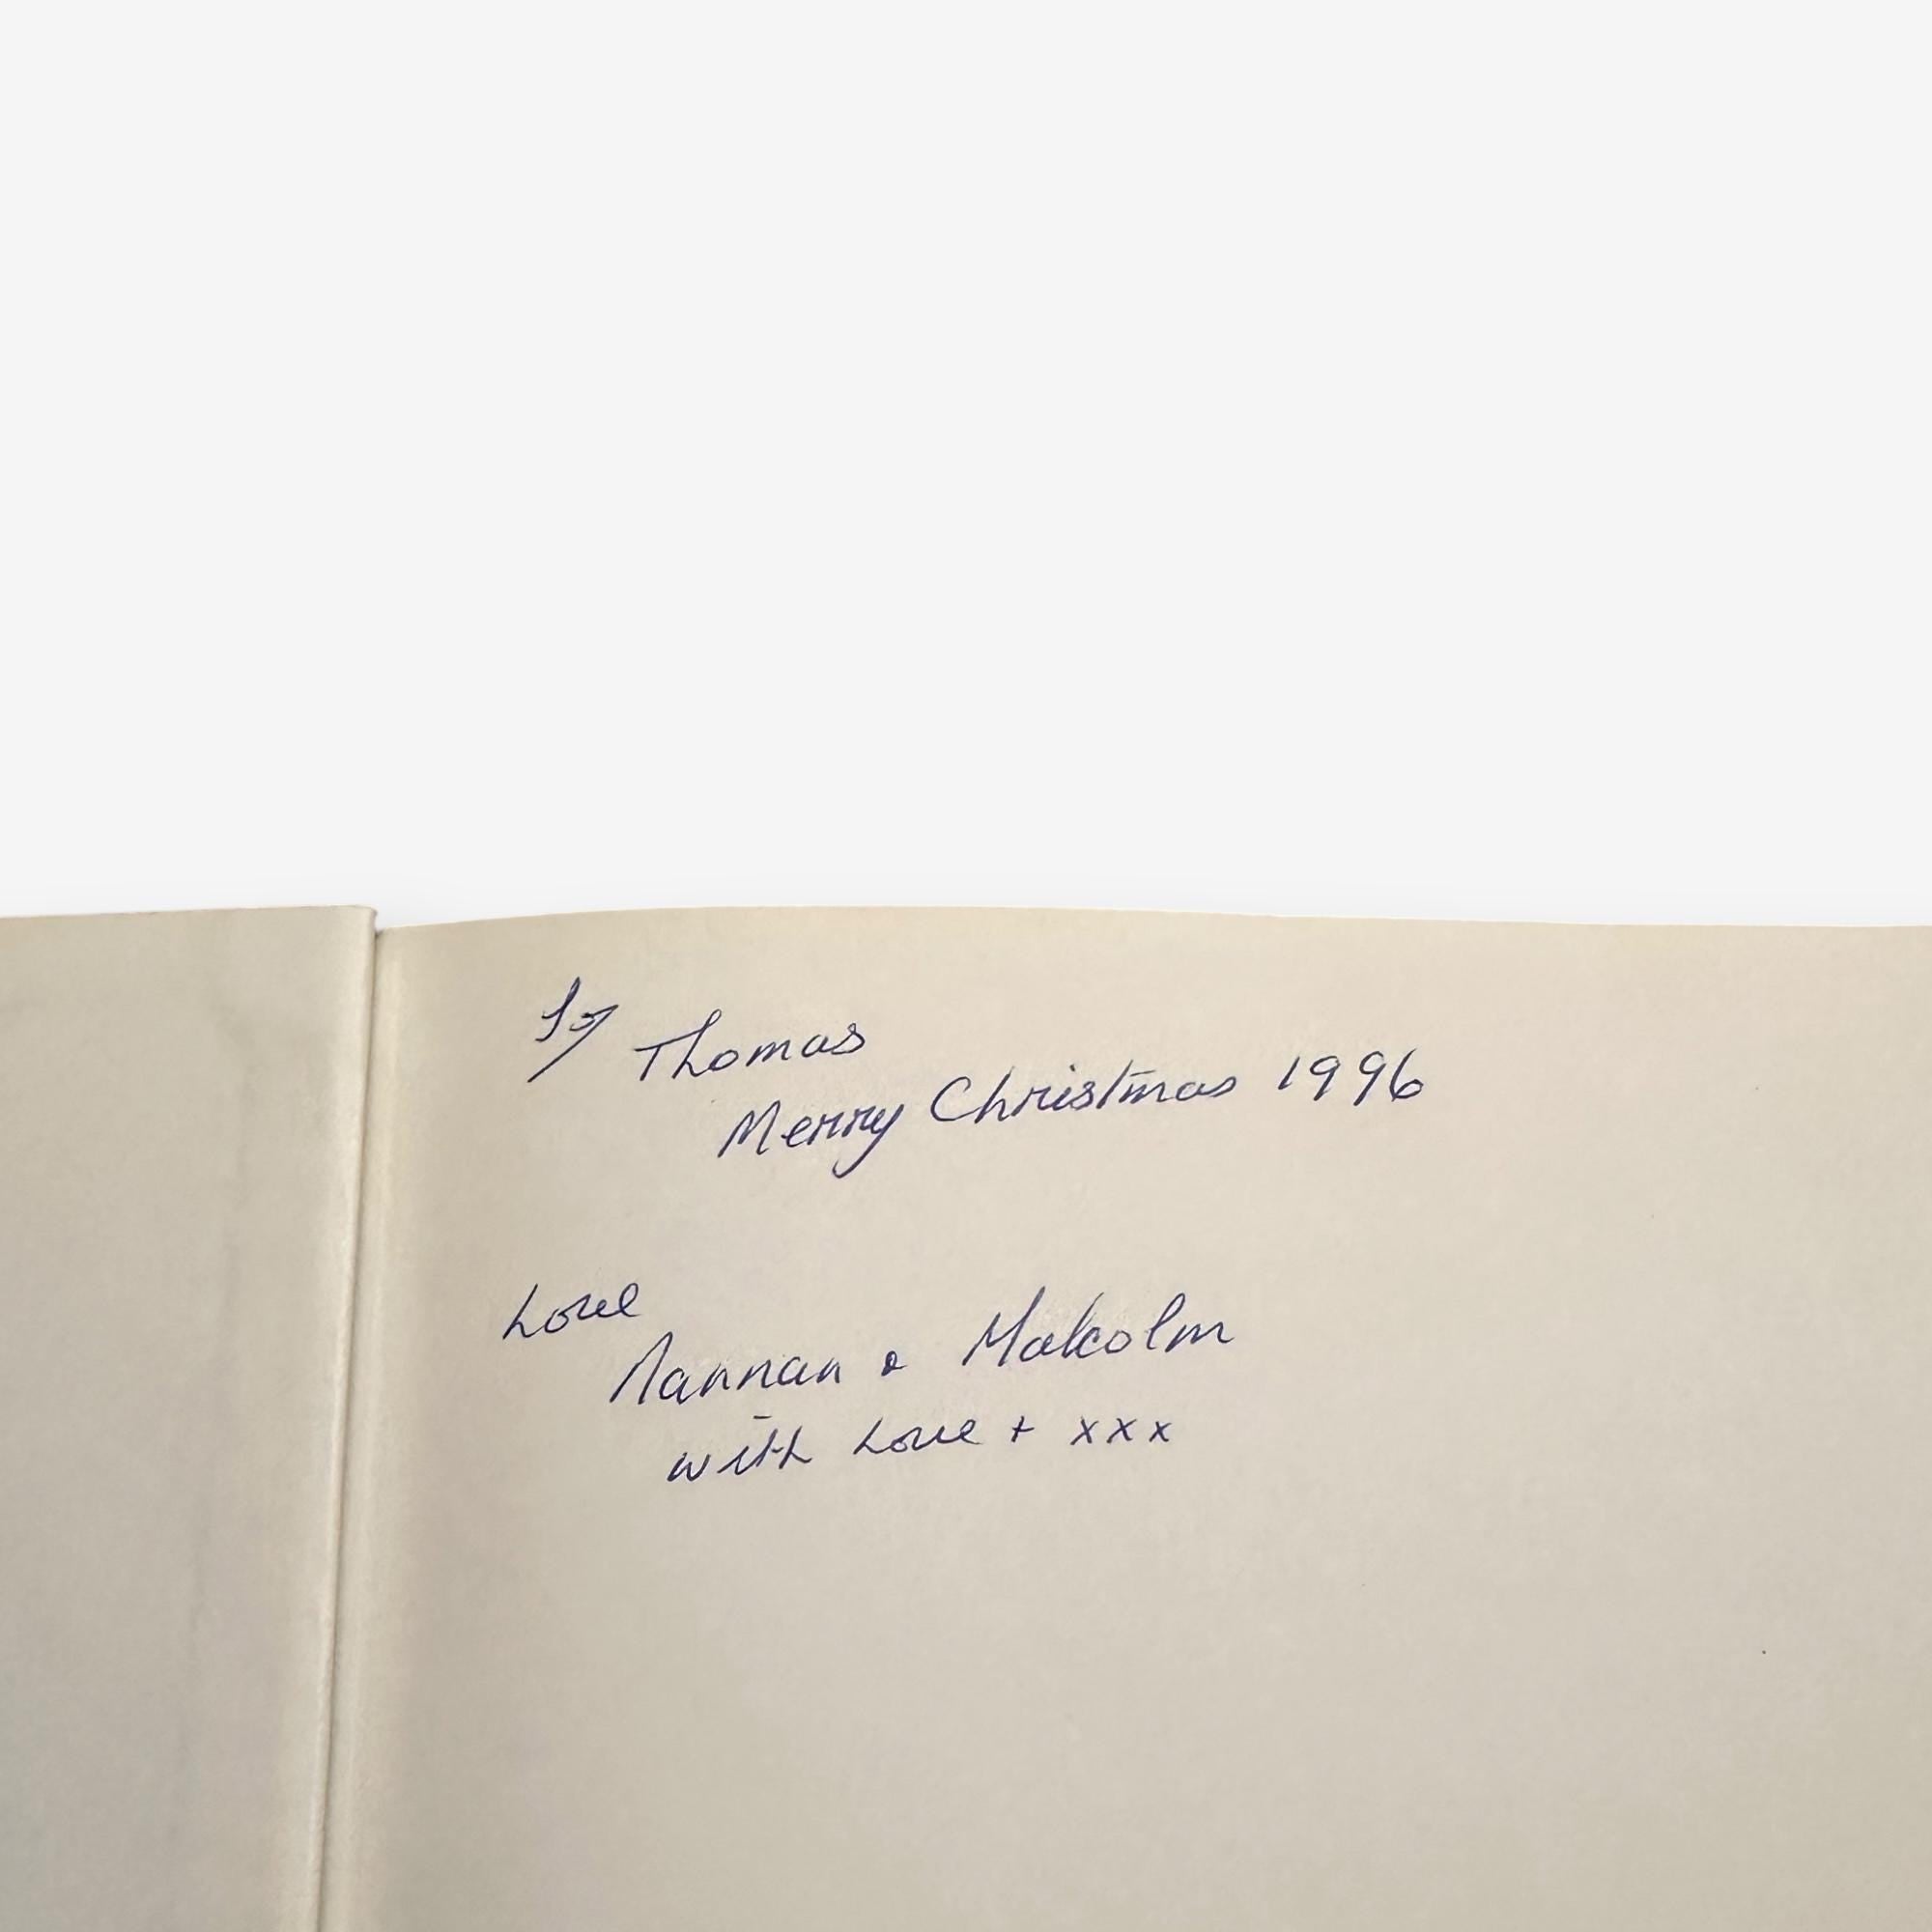 To/ Thomas
Merry Christmas 1996
Love
Nannan & Malcolm
with Love + xxx